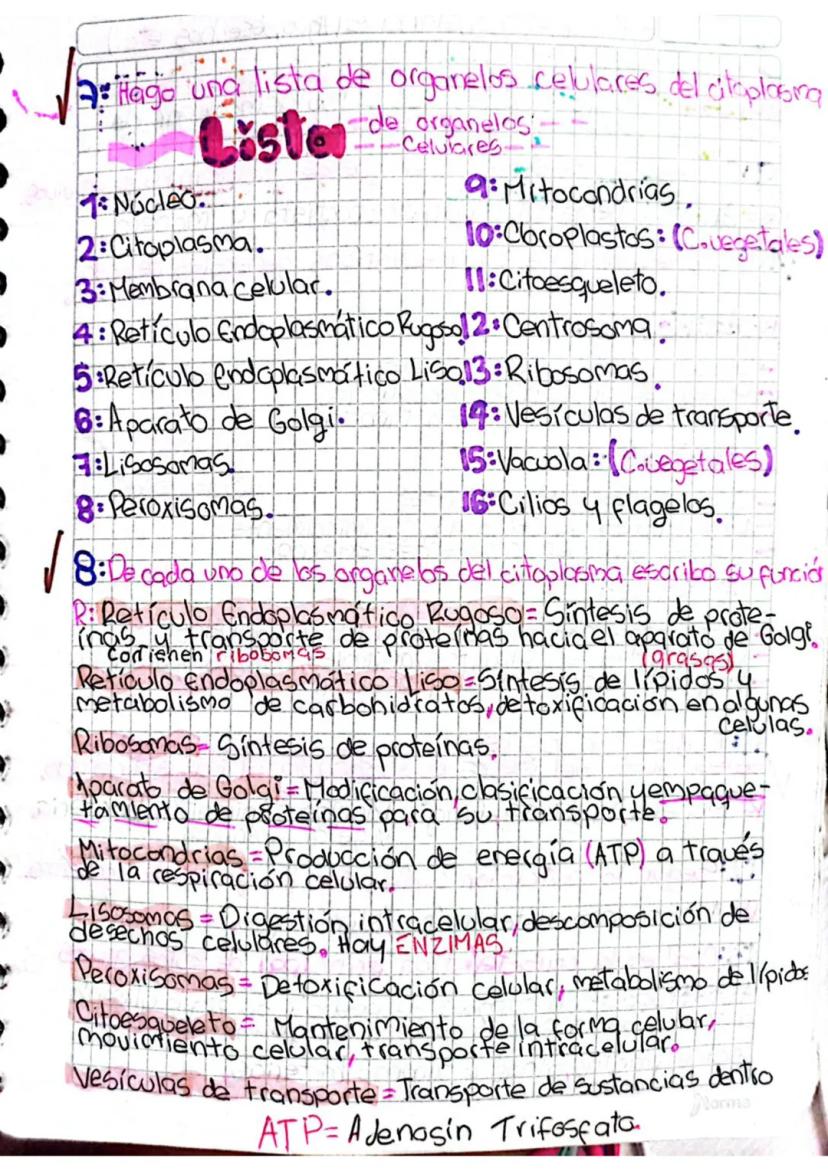 7: Hago una lista de organelos celulares del citoplasma
Lista de organelos
Celulares
1: Núcleo.
2: Citoplasma.
3: Membrana celular.
4: Retículo Endoplasmático Rugoso
5: Retículo endoplasmático Liso.
6: Aparato de Golgi.
7: Lisosomas.
8: Peroxisomas.
9: Mitocondrias.
10: Cloroplastos: (C.vegetales)
11: Citoesqueleto.
12: Centrosoma.
13: Ribosomas.
14: Vesículas de transporte.
15: Vacuola: (C.vegetales)
16: Cilios y flagelos.
8: De cada uno de los organelos del citoplasma escribo su función
R: Retículo Endoplasmático Rugoso = Síntesis de prote-
ínas y transporte de proteínas hacia el aparato de Golgi.
Contienen ribosomas
(grasas)
Retículo endoplasmático Liso = Síntesis de lípidos y
metabolismo de carbohidratos, detoxificación en algunas
celulas.
Ribosomas = Síntesis de proteínas.
Aparato de Golgi = Modificación, clasificación y empaque-
tamiento de proteínas para su transporte.
Mitocondrias = Producción de energía (ATP) a través
de la respiración celular.
Lisosomos = Digestión intracelular, descomposición de
desechos celulares. Hay ENZIMAS
Peroxisomas = Detoxificación celular, metabolismo de lípidos
Citoesqueleto = Mantenimiento de la forma celular,
movimiento celular, transporte intracelular.
Vesículas de transporte = Transporte de sustancias dentro
Norma
ATP = Adenosín Trifosfata.